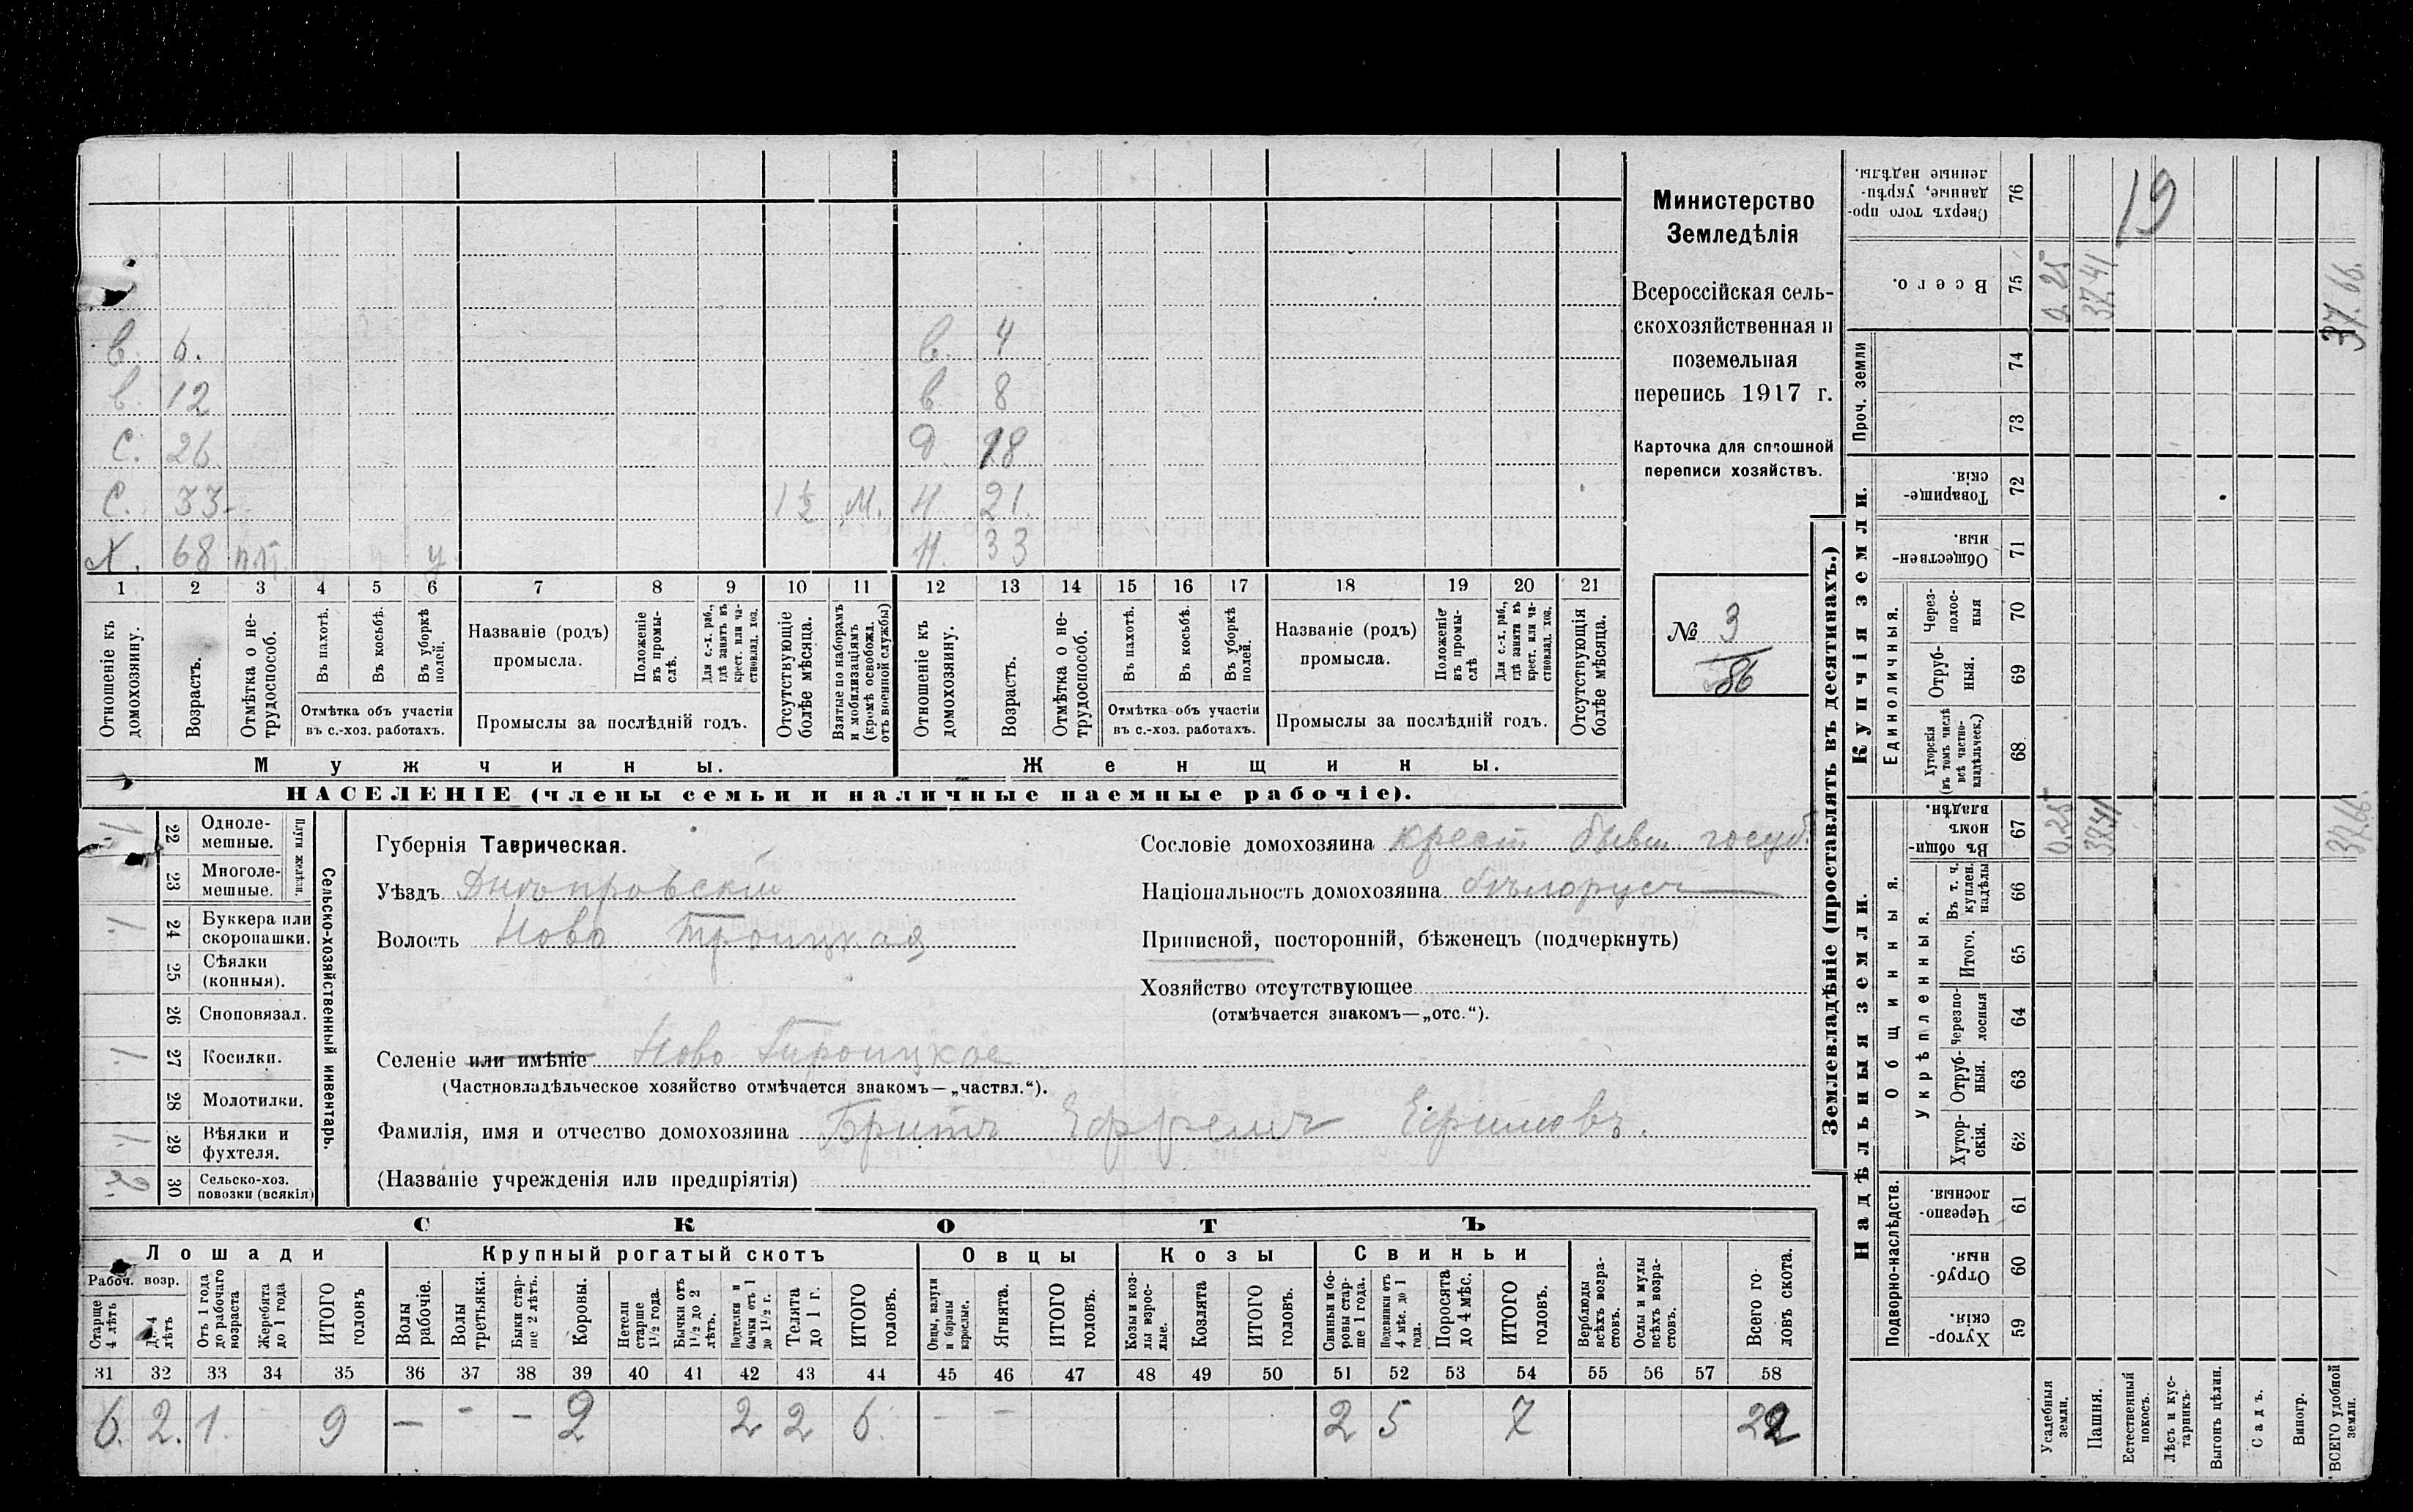 в. 6. в. 4
в. 12 в. 8
С. 26 д. 18
С. 33 1½ М. Н. 21.
Х. 68 у Н. 33
1 2 3 4 5 6 7 8 9 10 11 12 13 14 15 16 17 18 19 20 21
Отношеніе къ домохозяину.
Возрастъ.
Отмѣтка о нетрудоспособ.
Въ пахотѣ.
Въ косьбѣ.
Въ уборкѣ полей.
Отмѣтка объ участіи
въ с.-хоз. работахъ.
Названіе (родъ)
промысла.
Положеніе въ промыслѣ.
Для с.-х. раб., гдѣ занятъ въ крест. или частновлад. хоз.
Промыслы за послѣдній годъ.
Отсутствующіе болѣе мѣсяца.
Взятые по наборамъ и мобилизаціямъ (кромѣ освобожд. отъ военной службы)
Отношеніе къ домохозяину.
Возрастъ.
Отмѣтка о нетрудоспособ.
Въ пахотѣ.
Въ косьбѣ.
Въ уборкѣ полей.
Отмѣтка объ участіи
въ с.-хоз. работахъ.
Названіе (родъ)
промысла.
Положеніе въ промыслѣ
Для с.-х. раб., гдѣ занята въ крест. или частновлад. хоз.
Промыслы за послѣдній годъ.
Отсутствующія болѣе мѣсяца.
Мужчины.
Женщины.
НАСЕЛЕНІЕ (члены семьи и наличные наемные рабочіе).
Министерство
Земледѣлія
Всероссійская сель-
скохозяйственная и
поземельная
перепись 1917 г.
Карточка для сплошной
переписи хозяйствъ.
№ 3
86
Сельско-хозяйственный инвентарь.
Плуги желѣзн.
1 22 Одноле-
мешные.
23 Многоле-
мешные.
1 24 Буккера или
скоропашки.
25 Сѣялки
(конныя).
26 Сноповязал.
1 27 Косилки.
28 Молотилки.
1 29 Вѣялки и
фухтеля.
2. 30 Сельско-хоз.
повозки (всякія)
Губернія Таврическая.
Уѣздъ Днѣпровскій
Волость Ново Троицкая
Сословіе домохозяина крест бывш госуд.
Національность домохозяина бѣлорусъ
Приписной, посторонній, бѣженецъ (подчеркнуть)
Хозяйство отсутствующее
(отмѣчается знакомъ—„отс.“).
Селеніе или имѣніе Ново Троицкое
(Частновладѣльческое хозяйство отмѣчается знакомъ—„частвл.“).
Фамилія, имя и отчество домохозяина Бритъ Ефремъ Ефимовъ.
(Названіе учрежденія или предпріятія)
СКОТЪ
Лошади Крупный рогатый скотъ Овцы Козы Свиньи
Рабоч. возр.
Старше 4 лѣтъ
До 4 лѣтъ
Отъ 1 года до рабочаго возраста
Жеребята до 1 года
ИТОГО головъ
Волы рабочіе.
Волы третьяки.
Быки старше 2 лѣтъ.
Коровы.
Нетели старше 1½ года.
Бычки отъ 1½ до 2 лѣтъ.
Подтелки и бычки отъ 1 до 1½ г.
Телята до 1 г.
ИТОГО головъ.
Овцы, валухи и бараны взрослые.
Ягнята.
ИТОГО головъ.
Козы и козлы взрослые.
Козлята
ИТОГО головъ.
Свиньи и боровы старше 1 года.
Подсвинки отъ 4 мѣс. до 1 года.
Поросята до 4 мѣс.
ИТОГО головъ.
Верблюды всѣхъ возрастовъ.
Ослы и мулы всѣхъ возрастовъ.
Всего головъ скота.
31 32 33 34 35 36 37 38 39 40 41 42 43 44 45 46 47 48 49 50 51 52 53 54 55 56 57 58
6. 2. 1. - 9 — - — 2 2 2 6. - - 2 5 7 22
Землевладѣніе (проставлять въ десятинахъ.)
Сверхъ того проданные, укрѣпленные надѣлы. 76
19
Всего. 75 0.25 37.41 37.66.
Проч. земли 74
73
Купчія земли.
Товарищескія. 72
Общественныя. 71
Единоличныя.
Черезполосныя 70
Отрубныя. 69
Хуторскія (въ томъ числѣ всѣ частновладѣльческ.) 68
Надѣльныя земли.
Общинныя.
Въ общинномъ владѣн. 67 0.25 37.41 37.66.
Укрѣпленныя.
Въ т. ч. куплен. надѣлы 66
Итого. 65
Черезполосныя 64
Отрубныя. 63
Хуторскія. 62
Подворно-наслѣдств.
Черезполосныя. 61
Отрубныя. 60
Хуторскія. 59
Усадебныя земли.
Пашня.
Естественный покосъ.
Лѣсъ и кустарникъ.
Выгонъ цѣлин.
Садъ.
Виногр.
ВСЕГО удобной земли.